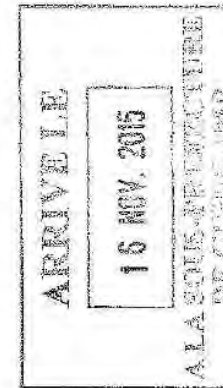 ARRIVE LE
16 NOV. 2015
A LA SOUS PREFECTURE